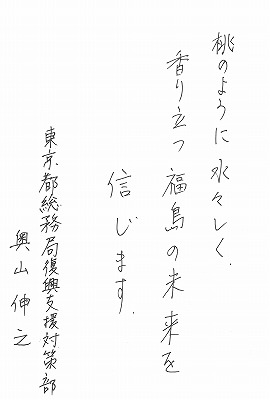 桃のように水々しく.
香り立つ福島の未来を
信じます.
東京都総務局復興支援対策部
奥山伸之